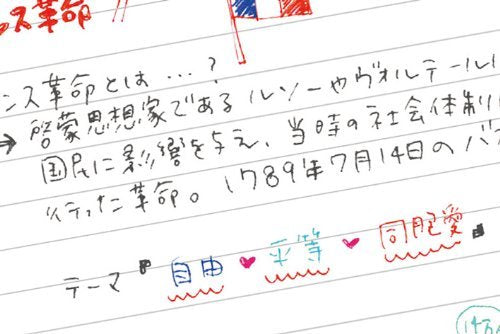 ス革命
ンス革命とは…?
→ 啓蒙思想家であるルソーやヴォルテール
国民に影響を与え、当時の社会体制
行った革命。1789年7月14日のバ
テーマ 自由 ♥ 平等 ♥ 同胞愛